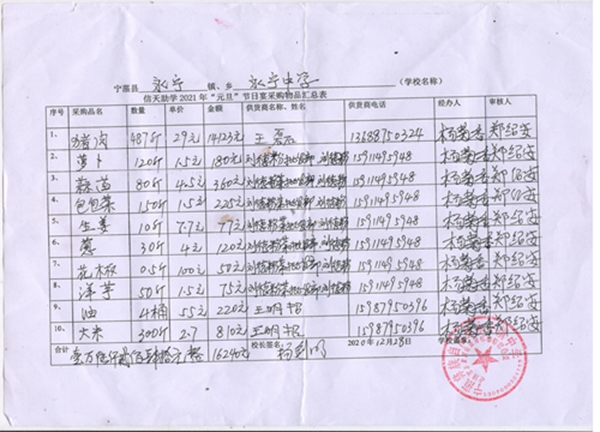 宁蒗县 永宁 镇、乡 永宁中学 (学校名称)
信天助学 2021 年“元旦”节日宴采购物品汇总表
序号 采购品名 数量 单价 金额 供货商名称、姓名 供货商电话 经办人 审核人
1、 猪肉 487斤 29元 14123元 王磊 13688750324 杨菊香 郑绍安
2、 萝卜 120斤 1.5元 180元 15911495948 杨菊香 郑绍安
3、 蒜苗 80斤 4.5元 360元 15911495948 杨菊香 郑绍安
4、 包包菜 150斤 1.5元 225元 15911495948 杨菊香 郑绍安
5、 生姜 10斤 7.7元 77元 15911495948 杨菊香 郑绍安
6、 葱 30斤 4元 120元 15911495948 杨菊香 郑绍安
7、 花椒 0.5斤 100元 50元 15911495948 杨菊香 郑绍安
8、 洋芋 50斤 1.5元 75元 15911495948 杨菊香 郑绍安
9、 油 4桶 55元 220元 王明 15987950396 杨菊香 郑绍安
10、 大米 300斤 2.7 810元 王明 15987950396 杨菊香 郑绍安
合计 壹万陆仟贰佰肆拾元整 16240元 校长签名: 2020年12月28日 学校盖章: